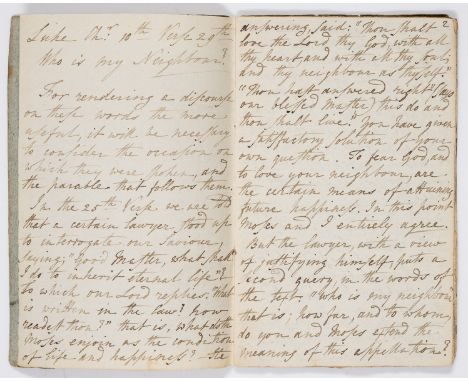 Luke Chr. 10th Verse 29th
Who is my Neighbour?
For rendering a discourse
on these words the more
useful, it will be necessary
to consider the occasion on
which they were spoken, and
the parable that follows them.
In the 25th Verse we are told
that a certain lawyer, stood up
to interrogate our Saviour,
saying; "Good Master, what shall
I do to inherit eternal life"?
to which our Lord replies, "What
is written in the law? how
readest thou?" that is, what doth
Moses enjoin as the condition
of life and happiness? the
2
answering, said: "Thou shalt
love the Lord thy God, with all
thy heart and with all thy soul;
and thy neighbour as thyself."
"Thou hast answered right" (says
our blessed Master) this do and
thou shalt live." You have given
a satisfactory solution of your
own question. To fear God, and
to love your neighbour, are
the certain means of attaining
future happiness. In this point
Moses and I entirely agree.
But the lawyer, with a view
of justifying himself, puts a
second query, in the words of
the text. "Who is my neighbour"
that is; how far, and to whom,
do you and Moses extend the
meaning of this appellation?